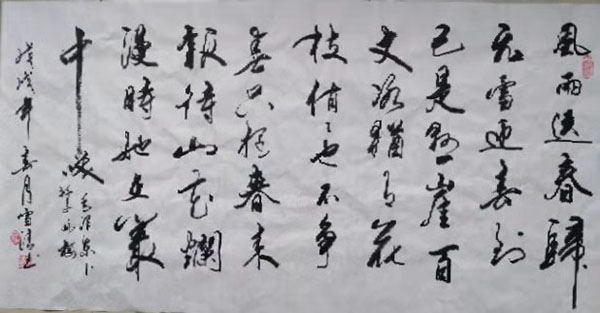 風雨送春歸
飛雪迎春到
已是懸崖百
丈冰猶有花
枝俏〻也不爭
春只把春来
報待山花爛
漫時她在叢
中笑
毛泽东卜
算子咏梅
戊戌年春月雪书